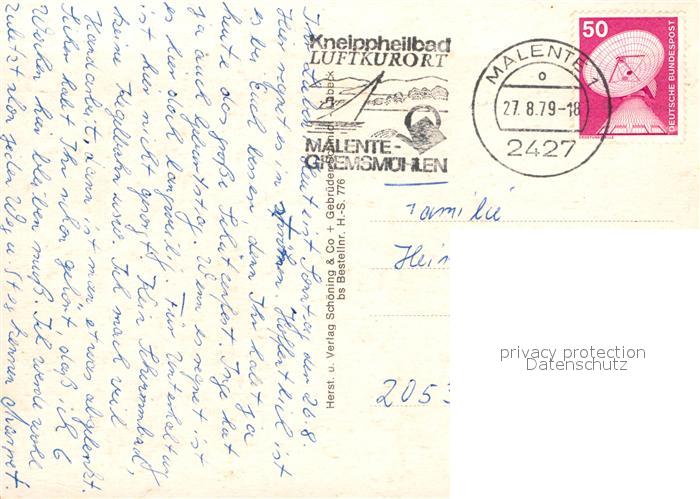 Kneippheilbad
LUFTKURORT
MALENTE-
GREMSMÜHLEN
MALENTE 1
27.8.79-18
2427
50
DEUTSCHE BUNDESPOST
Familie
Hein
2053
privacy protection
Datenschutz
Herst. u. Verlag Schöning & Co + Gebrüder Schmidt, Lübeck
bs Bestellnr. H.-S. 776
Ihr Lieben! Heut ist Sonntag der 26.8.
Hier regnet es in Strömen. Hoffentlich ist
es bei Euch besser, denn Ihr habt ja
heute das große Schützenfest. Inge hat
ja auch Geburtstag. Wenn es regnet ist
es hier doch langweilig. Für Unterhaltung
ist hier nicht gesorgt. Kein Thermalbad,
keine Kegelbahn usw. Ich mach viel
Handarbeit, dann ist man etwas abgelenkt.
Sicher habt Ihr schon gehört, daß ich 6
Wochen hier bleiben muß. Ich werde wohl
zuletzt aber jeden Weg u. Steg kennen